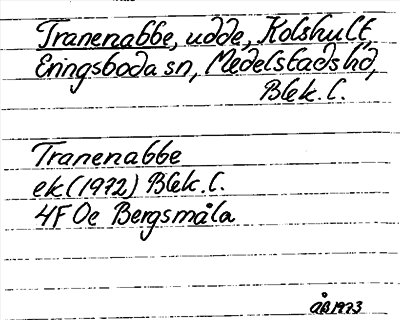 Tranenabbe, udde, Kolshult,
Eringsboda sn, Medelstads hd,
Blek. l.
Tranenabbe
ek (1972) Blek. l.
4F 0e Bergsmåla
ÅB 1973